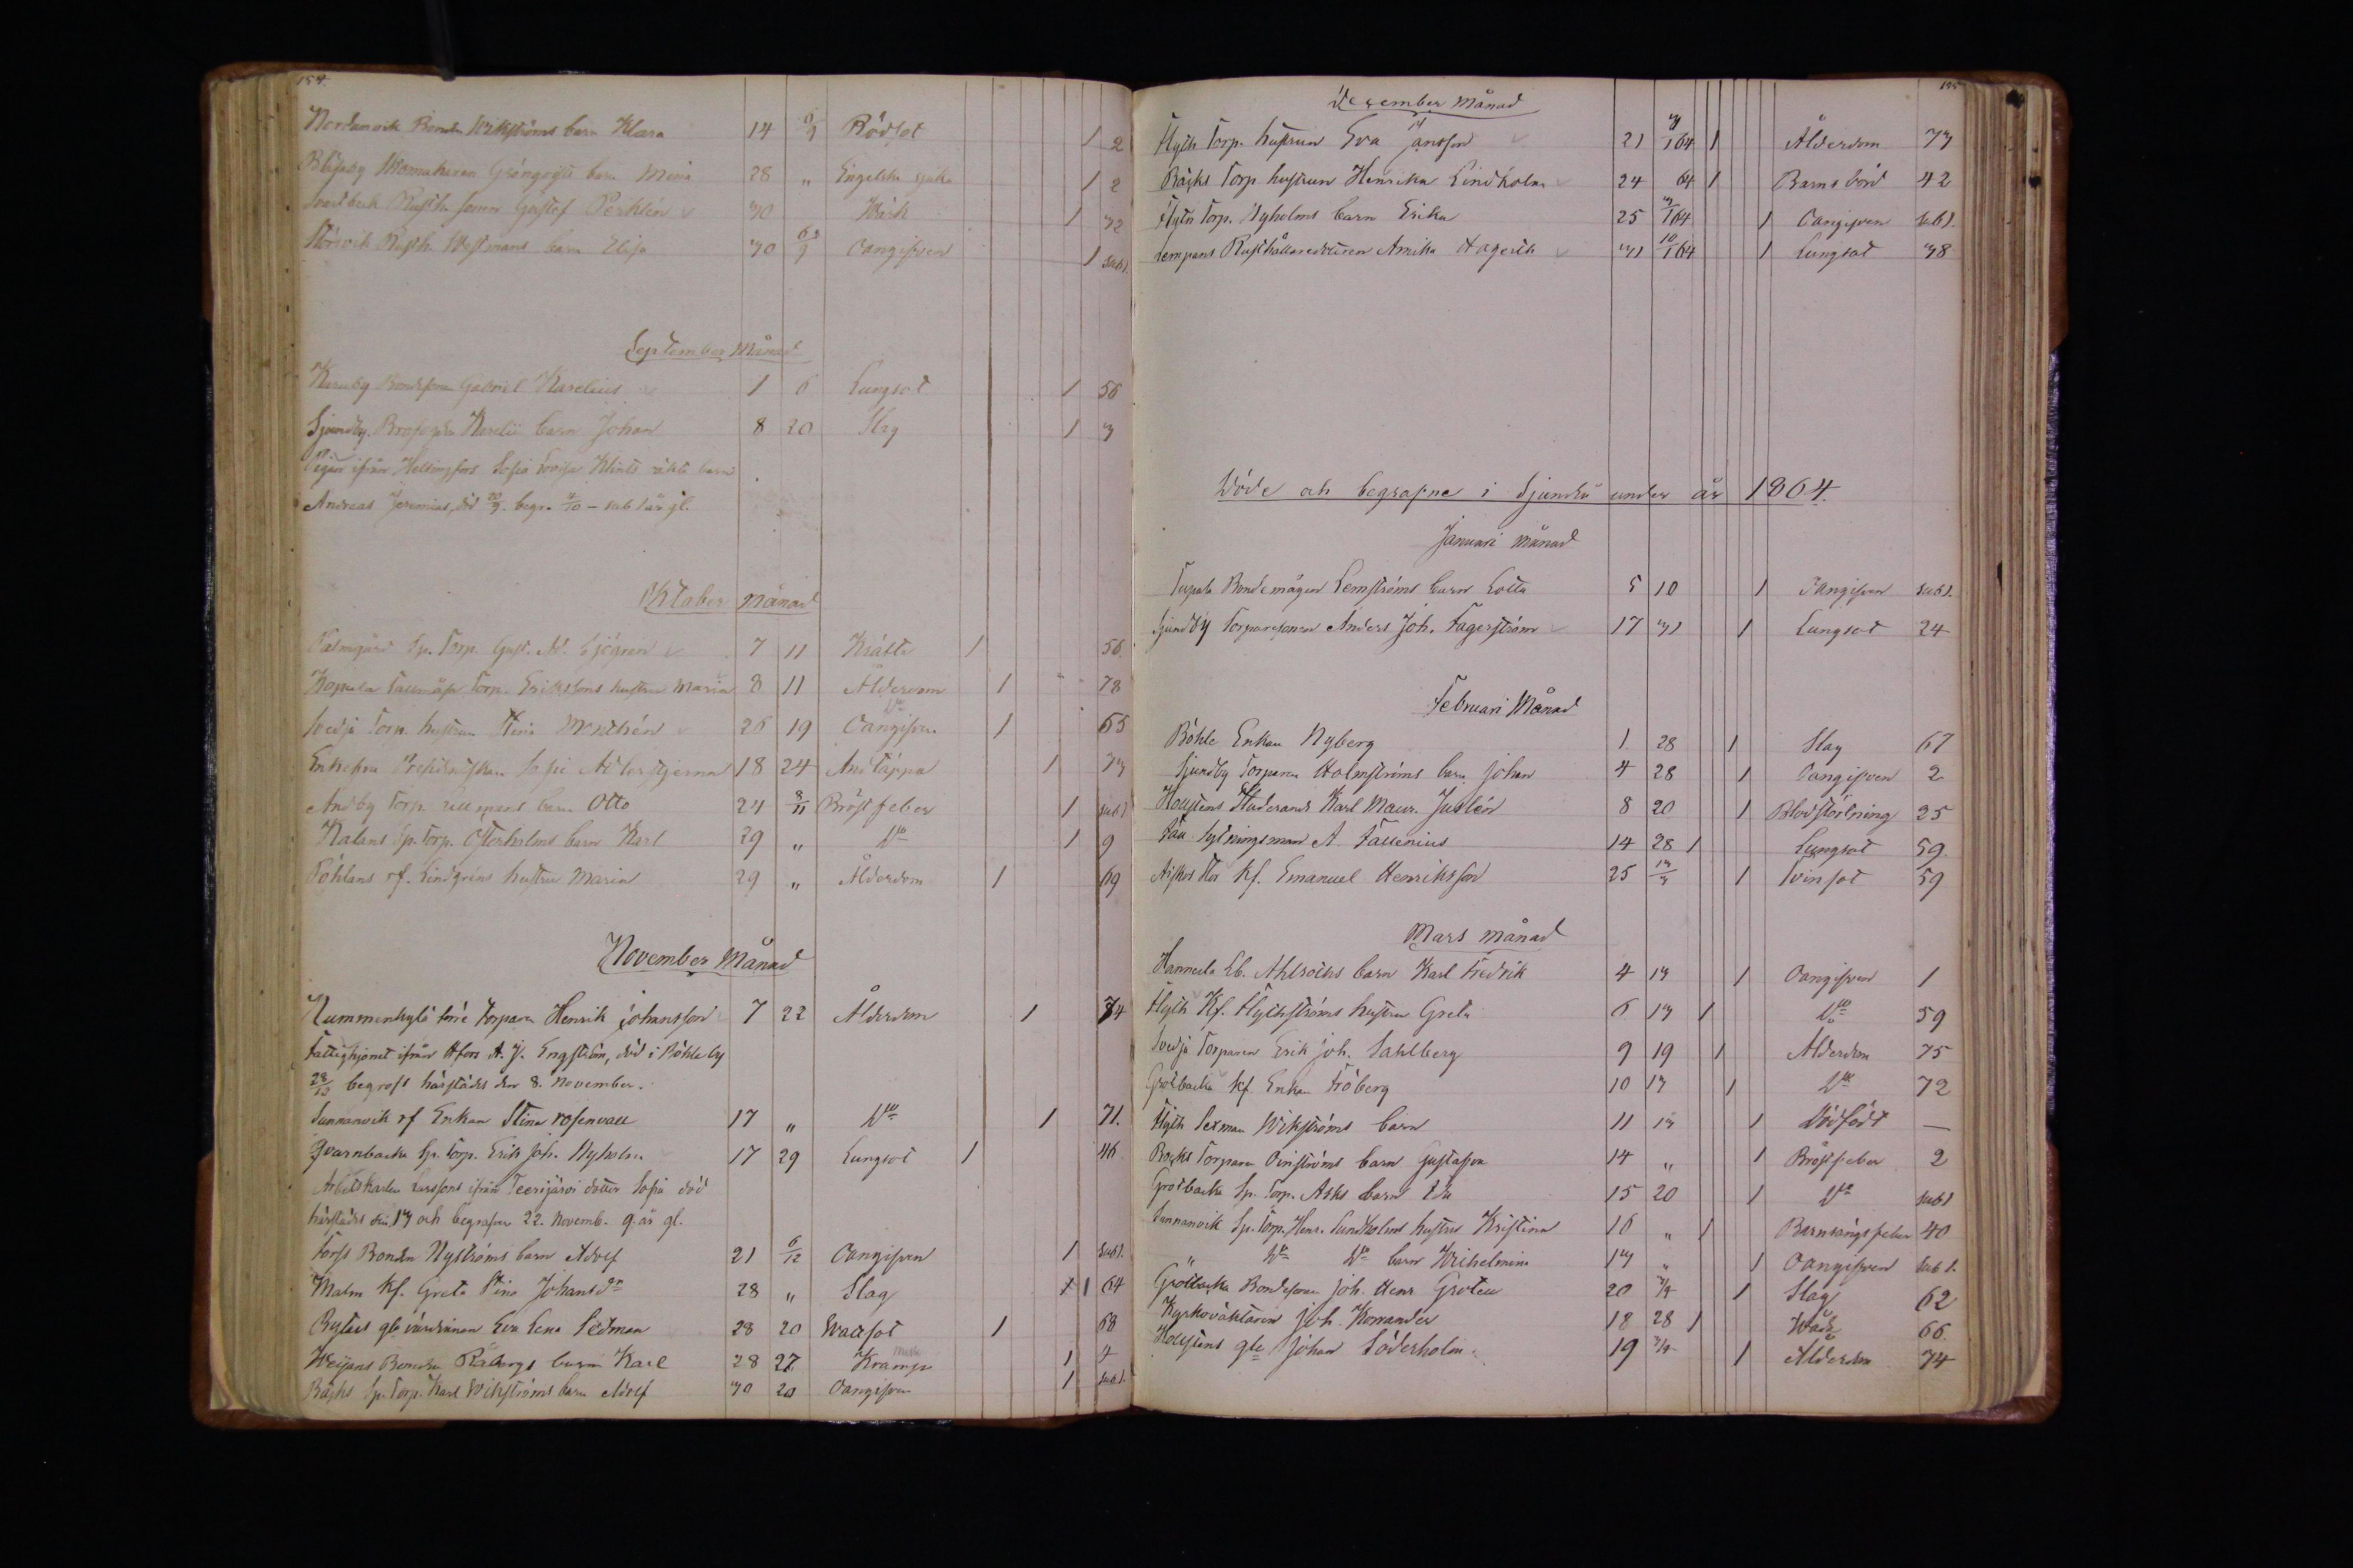 154.
Nordanvik Bonden Wikströms barn Klara 14 6/9 Rödsot 1 2
Skomakaren Gröngvists barn Mina 28 „ Engelska sjuka 1 2
Svartbäck Rusth. sonen Gustaf Perklén 30 Wärk 1 32
Störsvik Rusth. Westmans barn Elisa 30 6/9 Oangifven 1 sub 1.
September Månad
Karuby Bondesonen Gabriel Karelius 1 6 Lungsot 1 56
Sjundby Karelii barn Johan 8 20 Slag 1 3
Pigan ifrån Helsingfors Sofia Lovisa Klints oäkta barn
Andreas Jeremias, död 20/9. begr. 4/10 – sub 1 år gl.
Oktober Månad
Palmgård Sp. Torp. Gust. Ad. Sjögren 7 11 Kräfta 1 56.
Kopula Tallmåsa Torp. Erikssons hustru Maria 8 11 Ålderdom 1 78
Svedja Torp. hustrun Stina 26 19 Oangifven 1 65
Enkefru Presidentskan Sofie Adlerstjerna 18 24 Andtäppa 1 73
Andby Torp. Lillmans barn Otto 24 8/11 Bröstfeber 1 sub 1
Kalans Sp. Torp. Österholms barn Karl 29 „ Do 1 9
Pöhlans rf. Lindgréns hustru Maria 29 „ Ålderdom 1 69
November Månad
Nummenkylä förre Torparen Henrik Johansson 7 22 Ålderdom 1 84
Fattighjonet ifrån Hfors A. J. Engström, död i Böhle by
28/10 begrafs härstädes den 8. November.
Sunnanvik rf Enkan Stina rosenvall 17 „ Do 1 71.
Qvarnbacka Sp. Torp. Erik Joh. Nyholm 17 29 Lungsot 1 46
Arbetskarlen Larssons ifrån Teerijärvi dotter Sofia död
härstädes den 13 och begrafven 22. Novemb. 9. år gl.
Torfs Bonden Nyströms barn Adolf 21 6/12 Oangifven 1 sub 1.
Malm kf. Greta Stina Johansdr 28 „ Slag x 1 64
Bytars gla värdinnan Eva Lena Sedman 28 20 Wattsot 1 68
Weijans Bonden Råbergs barn Karl 28 27 Kramp 1 4
Bäcks Sp. Torp. Karl Wikströms barn Adolf 30 20 Oangifven 1 sub 1.
155
December Månad
Flyth Torp. hustrun Eva Jansson 21 3/1 64 1 Ålderdom 73
Bäcks Torp hustrun Henrika Lindholm 24 64 1 Barns börd 42
Flyth Torp. Nyholms barn Erika 25 3/1 64 1 Oangifven sub 1.
Lempans Rusthållaredottren Amika Hagert 31 10/1 64 1 Lungsot 38
Döde och begrafne i Sjundeå under år 1864.
Januari Månad
Tupala Bondemågen Lemströms barn Lotta 5 10 1 Oangifven sub 1.
Sjundby Torparesonen Anders Joh. Fagerström 17 31 1 Lungsot 24
Februari Månad
Böhle Enkan Nyberg 1. 28 1 Slag 67
Sjundby Torparen Holmströms barn Johan 4 28 1 Oangifven 2
Hollstens Studerande Karl Maur. Juslén 8 20 1 Blodstörtning 25
Tätt Sytningsman A. Tallenius 14 28 1 Lungsot 59.
Aiskos Sta Kf. Emanuel Henriksson 25 13/3 1 Tvinsot 59
Mars Månad
Hannula Eb. Ahlroths barn Karl Fredrik 4 13 1 Oangifven 1
Flyth Kf. Flythströms hustru Greta 6 13 1 Do 59
Svedja Torparen Erik Joh. Sahlberg 9 19 1 Ålderdom 75
Grotbacka Kf. Enkan Fröberg 10 13 1 Do 72
Flyth Sexman Wikströms barn 11 13 1 Dödfödt —
Bäcks Torparen Qvinströms barn Gustafva 14 „ 1 Bröstfeber 2
Grotbacka Sp. Torp. Asks barn Ida 15 20 1 Do sub 1
Sunnanvik Sp. Torp. Henr. Sundholms hustru Kristina 16 „ 1 Barnsängsfeber 40
„ Do Do barn Wilhelmina 17 „ 1 Oangifven sub 1.
Grotbacka Bondesonen Joh. Henr. Groten 20 3/4 1 Slag 62
Kyrkoväktaren Joh. Korrander 18 28 1 Wåda 66.
Hollstens gle Johan Söderholm 19 3/4 1 Ålderdom 74